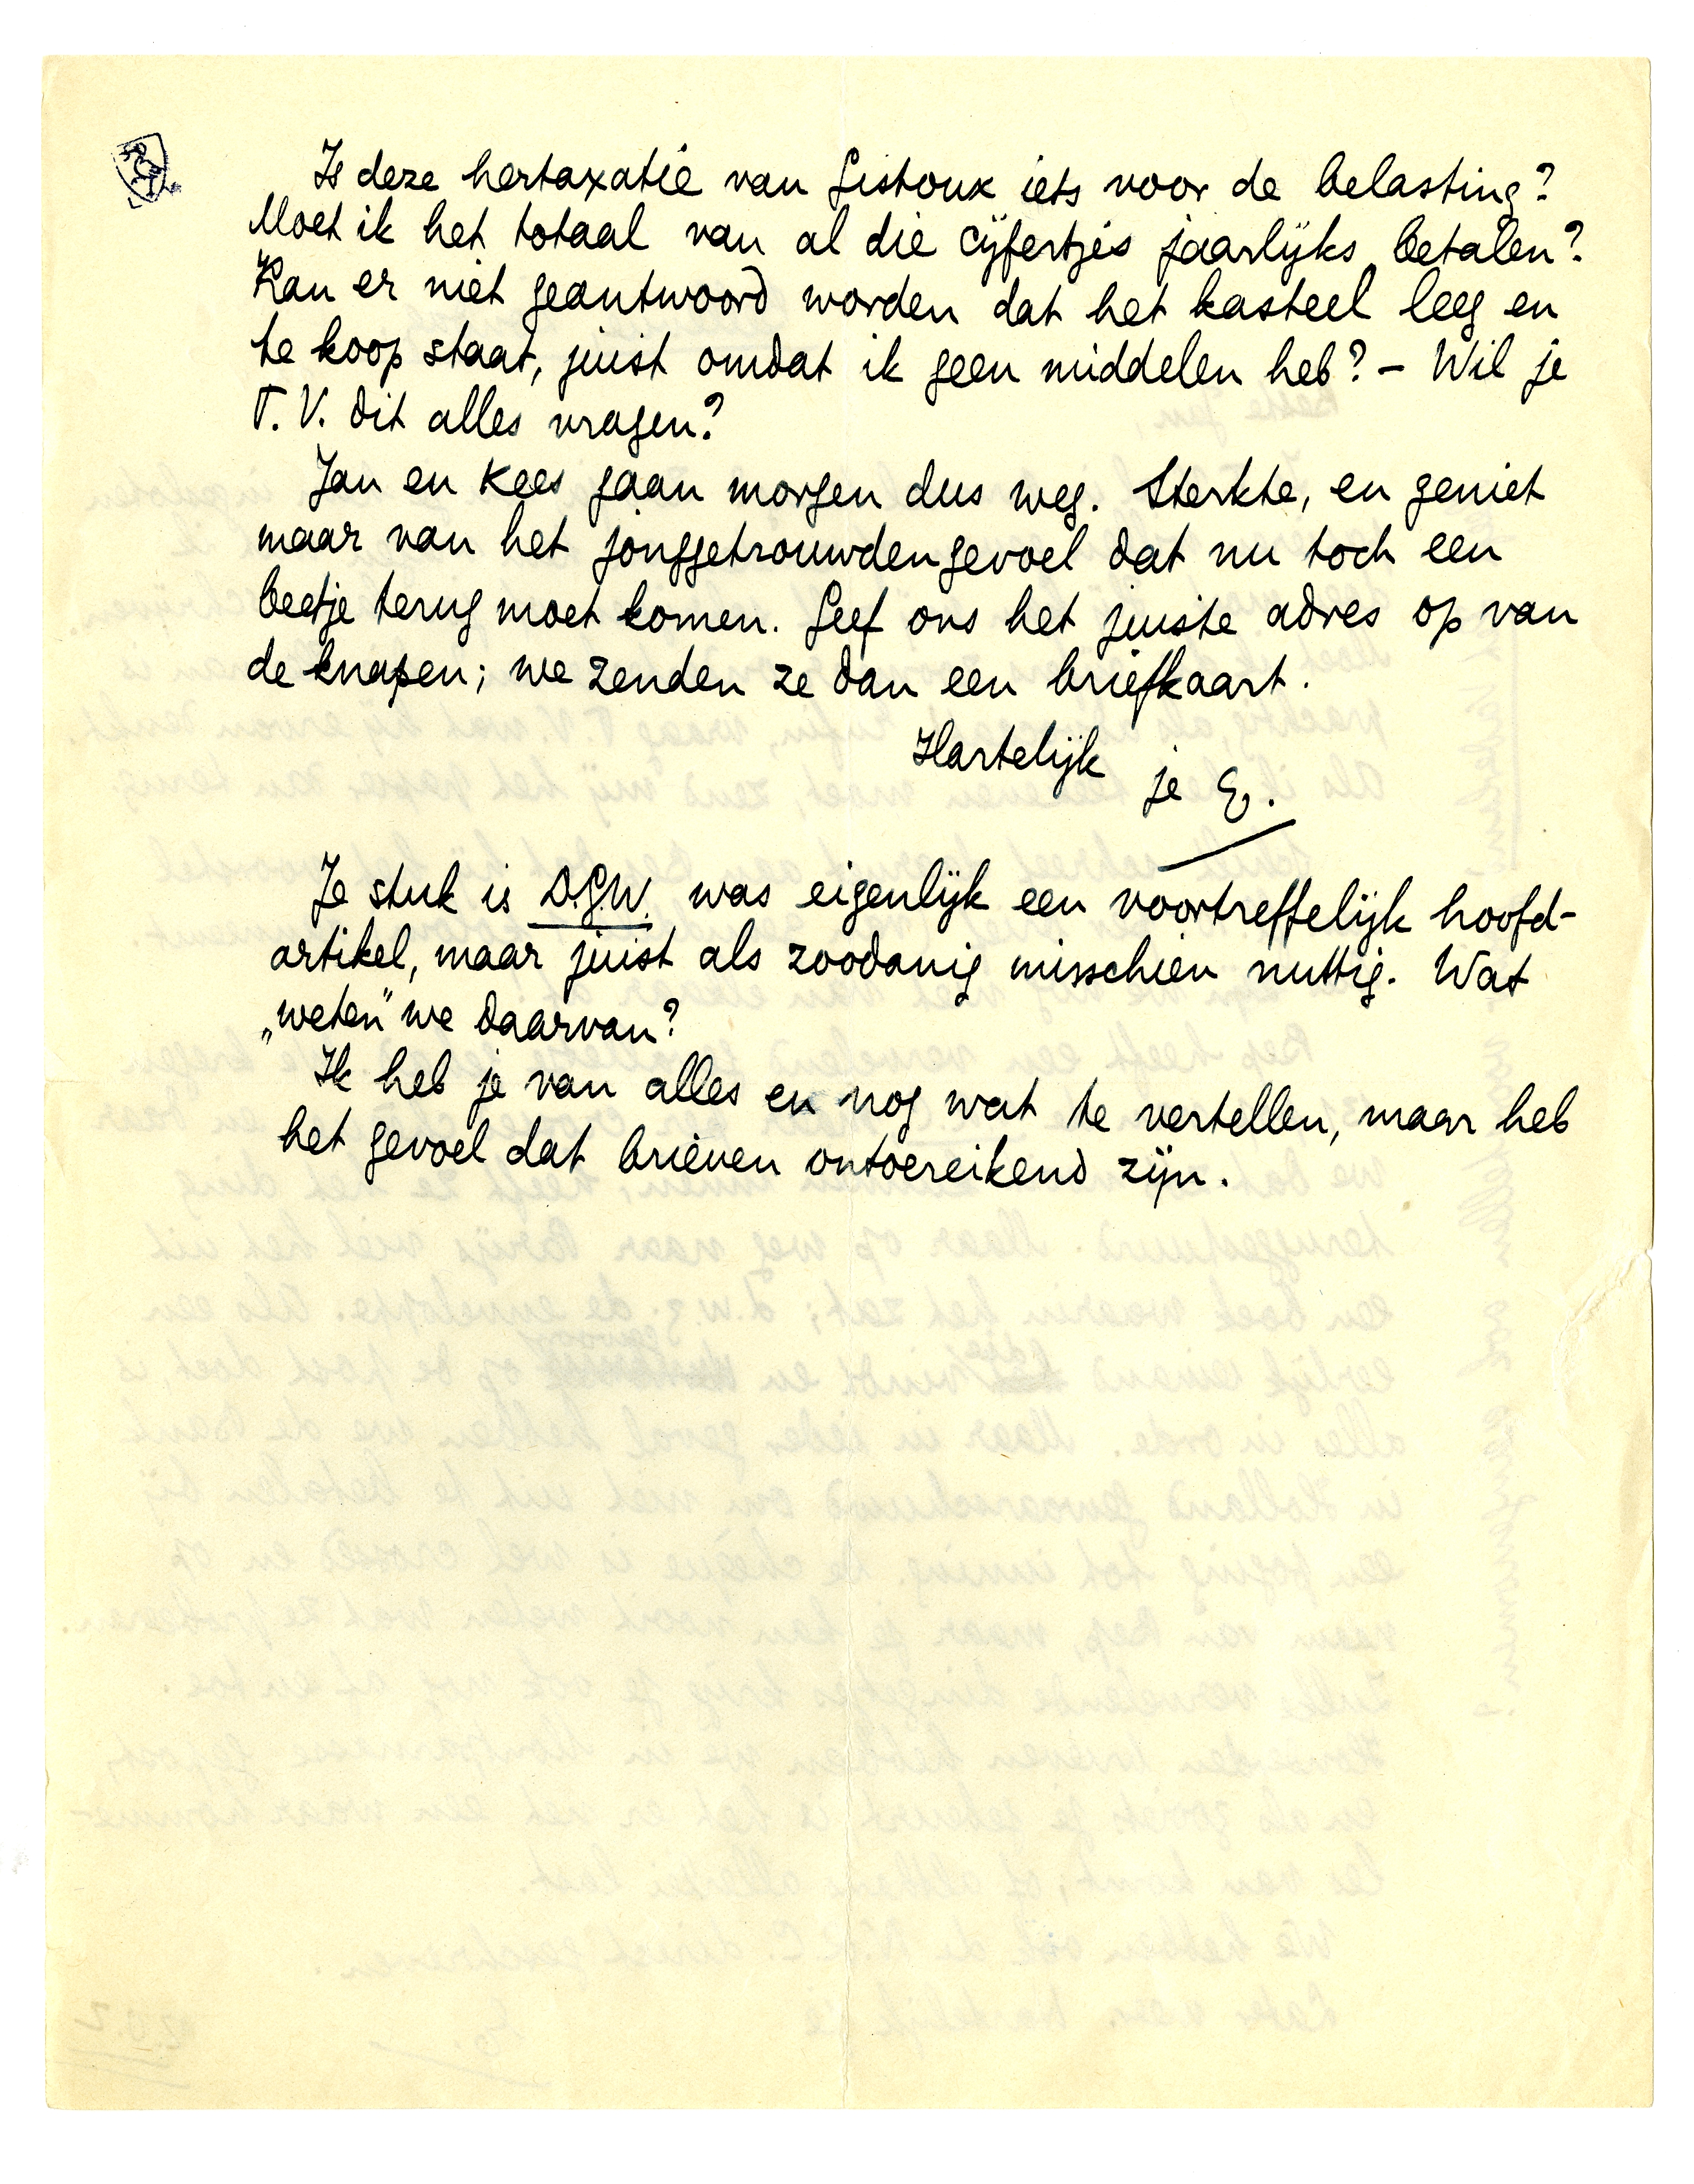 Is deze hertaxatie van Gistoux iets voor de belasting?
Moet ik het totaal van al die cijfertjes jaarlijks betalen?
Kan er niet geantwoord worden dat het kasteel leeg en
te koop staat, juist omdat ik geen middelen heb? – Wil je
T. V. dit alles vragen?
Jan en Kees gaan morgen dus weg. Sterkte, en geniet
maar van het jonggetrouwdengevoel dat nu toch een
beetje terug moet komen. Geef ons het juiste adres op van
de knapen; we zenden ze dan een briefkaart.
Hartelijk
je E.
Je stuk is D.G.W. was eigenlijk een voortreffelijk hoofd-
artikel, maar juist als zoodanig misschien nuttig. Wat
„weten" we daarvan?
Ik heb je van alles en nog wat te vertellen, maar heb
het gevoel dat brieven ontoereikend zijn.